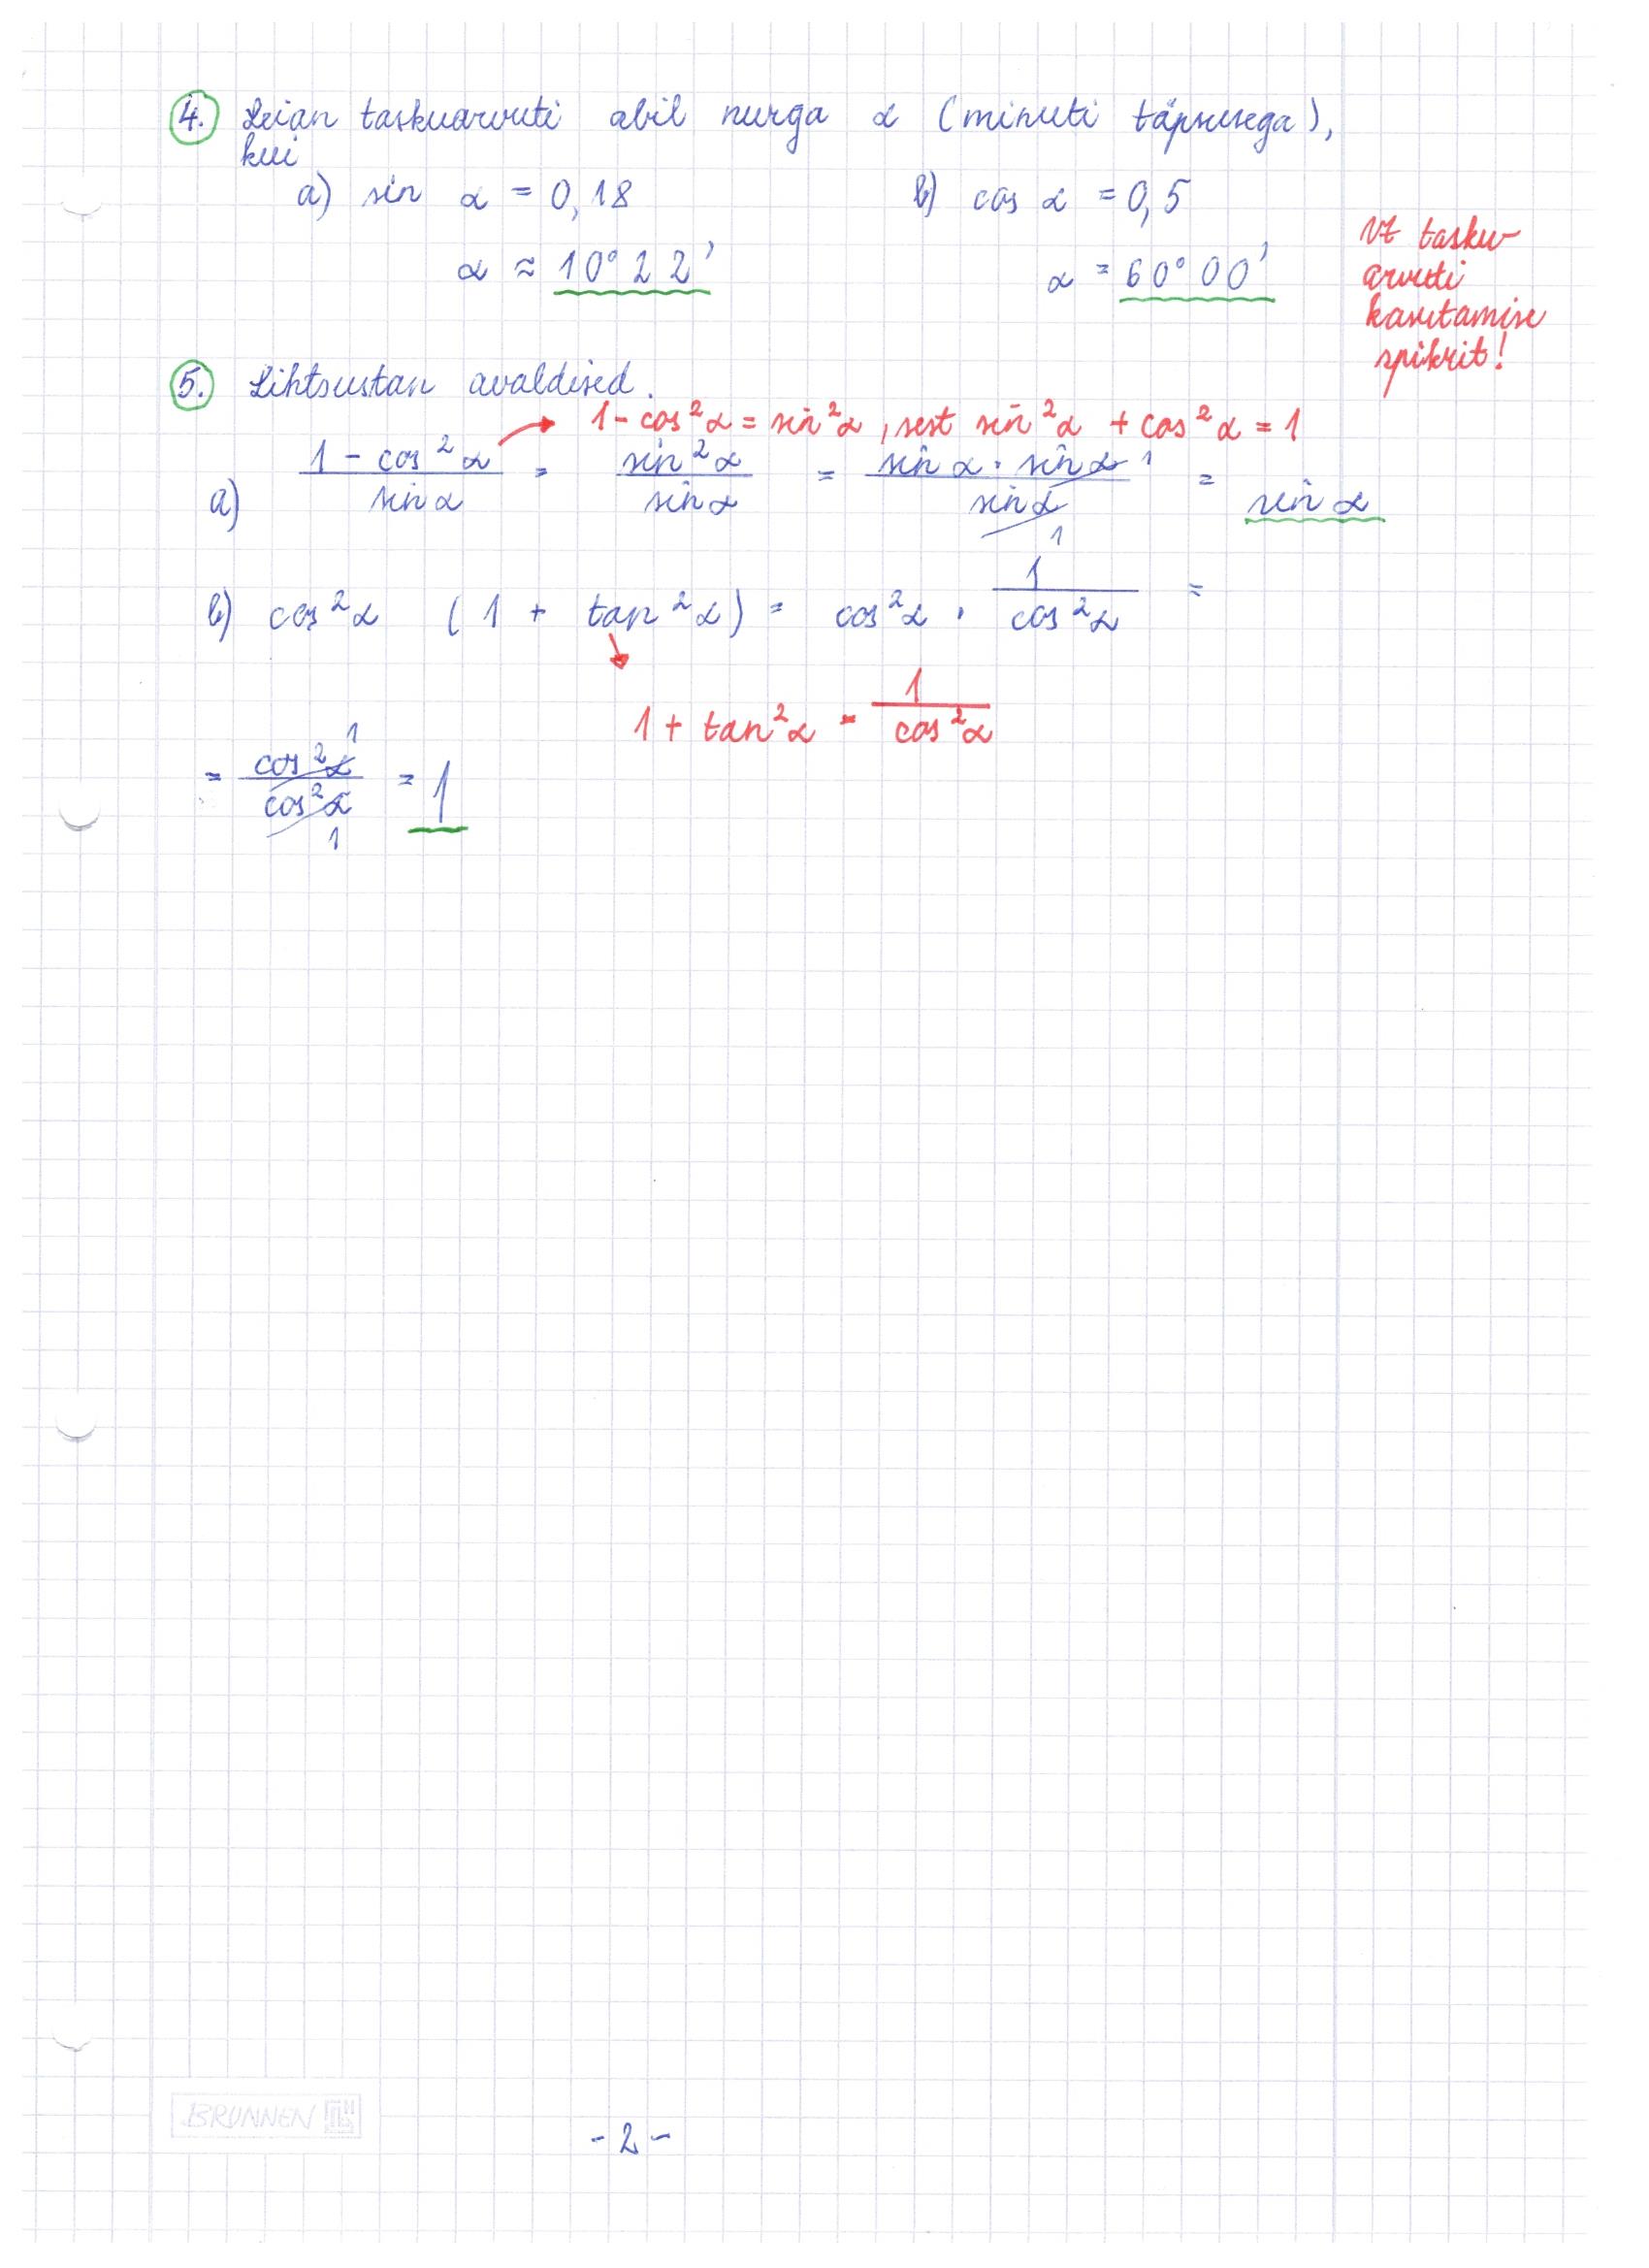 4. Leian taskuarvuti abil nurga α (minuti täpsusega),
kui
a) sin α = 0,18
b) cos α = 0,5
α ≈ 10° 22'
α = 60° 00'
Vt tasku-
arvuti
kasutamise
spikrit!
5. Lihtsustan avaldised.
1 - cos²α = sin²α, sest sin²α + cos²α = 1
a) (1 - cos²α)/(sin α) = (sin²α)/(sin α) = (sin α · sin α 1)/(sin α 1) = sin α
b) cos²α (1 + tan²α) = cos²α · 1/(cos²α) =
1 + tan²α = 1/(cos²α)
= (cos²α 1)/(cos²α 1) = 1
BRUNNEN
- 2 -